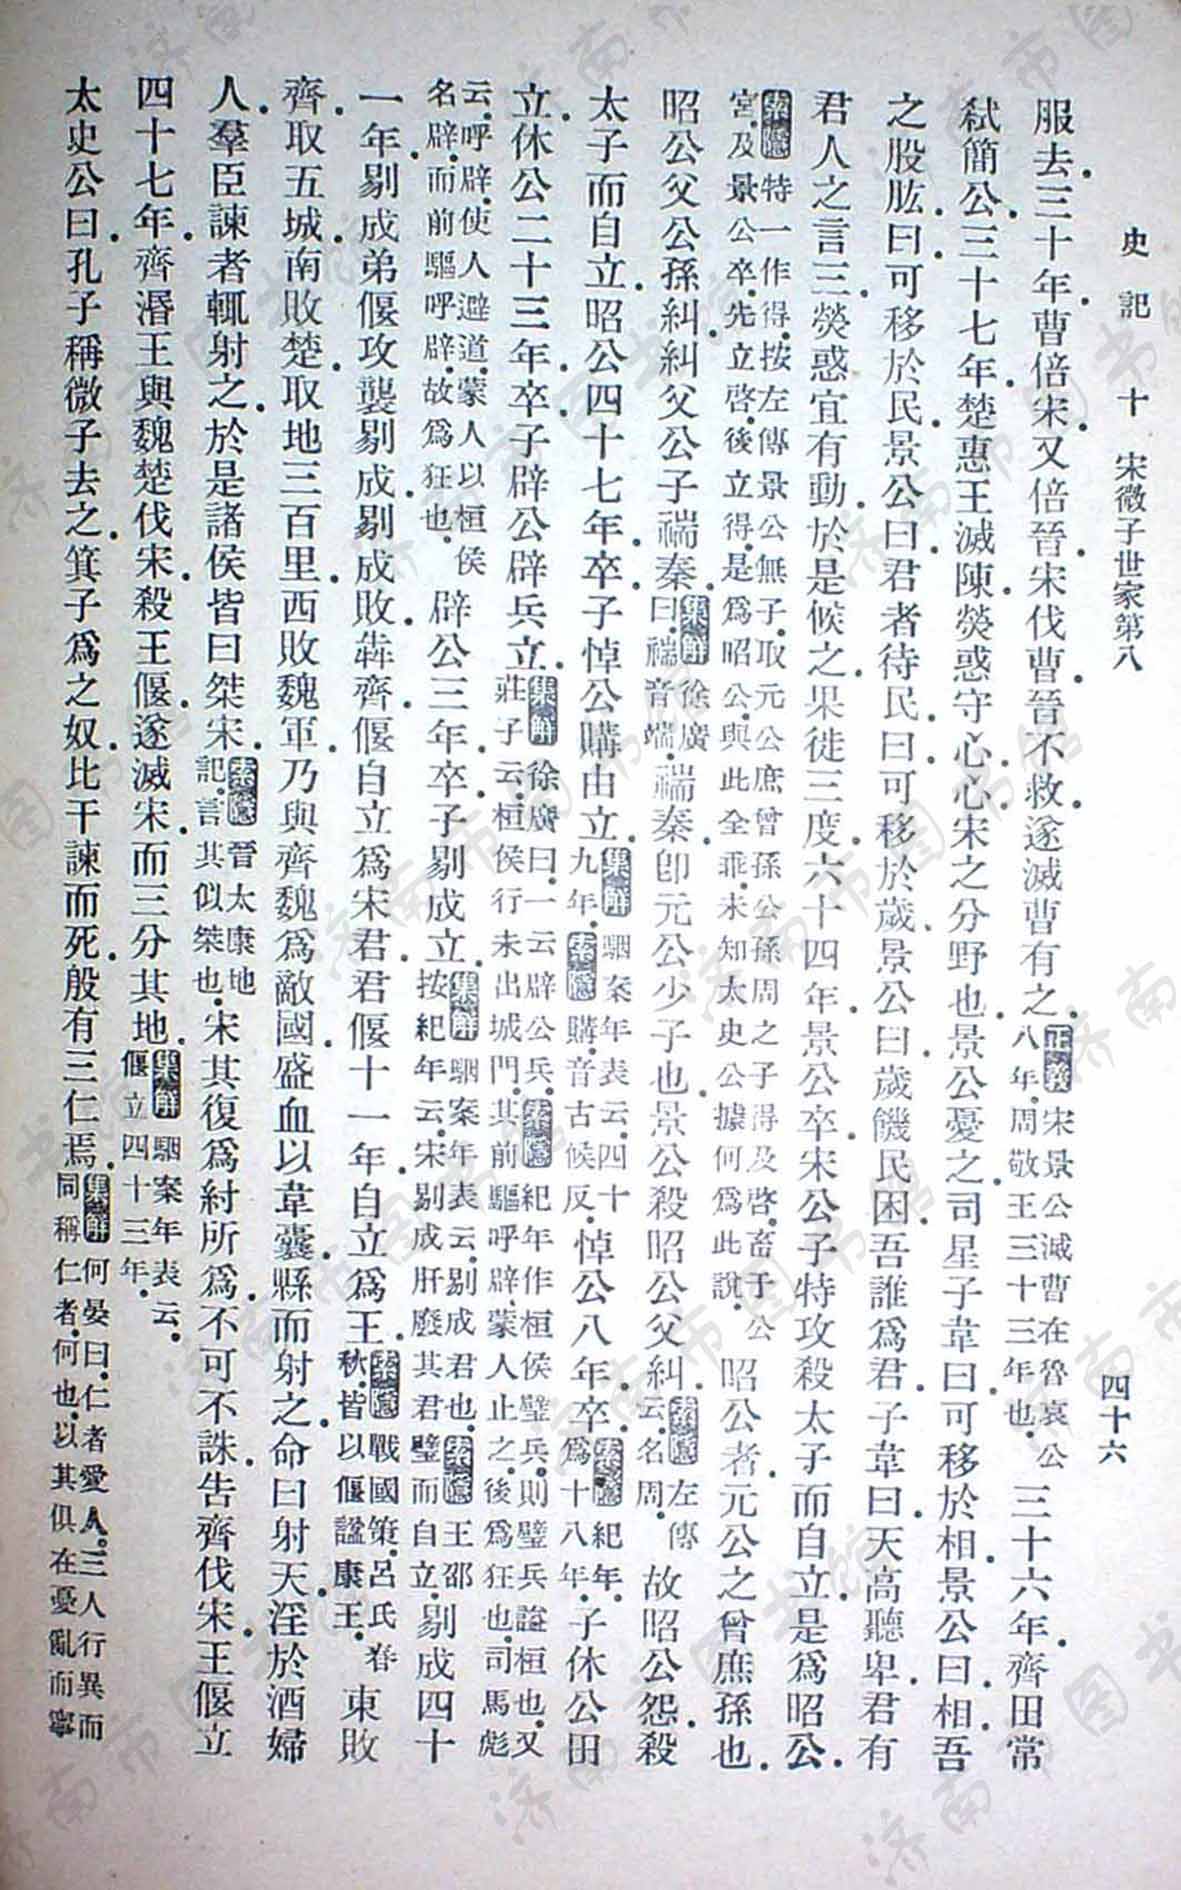 史記 十 宋微子世家第八 四十六
服去.三十年.曹倍宋.又倍晉.宋伐曹.晉不救.遂滅曹有之.【正義】宋景公滅曹在魯哀公八年.周敬王三十三年也.三十六年.齊田常
弒簡公.三十七年.楚惠王滅陳.熒惑守心.心.宋之分野也.景公憂之.司星子韋曰.可移於相.景公曰.相.吾
之股肱.曰.可移於民.景公曰.君者待民.曰.可移於歲.景公曰.歲饑民困.吾誰爲君.子韋曰.天高聽卑.君有
君人之言三.熒惑宜有動.於是候之.果徙三度.六十四年.景公卒.宋公子特攻殺太子而自立.是爲昭公.
【索隱】特一作得.按左傳景公無子.取元公庶曾孫公孫周之子得及啓.畜于公宮.及景公卒.先立啓.後立得.是爲昭公.與此全乖.未知太史公據何爲此說.昭公者.元公之曾庶孫也.
昭公父公孫糾.糾父公子褍秦.【集解】徐廣曰.褍音端.褍秦.卽元公少子也.景公殺昭公父糾.【索隱】左傳云.名周.故昭公怨.殺
太子而自立.昭公四十七年.卒.子悼公購由立.【集解】駰案年表云.四十九年.【索隱】購.音古候反.悼公八年.卒.【索隱】紀年.爲十八年.子休公田
立.休公二十三年.卒.子辟公辟兵立.【集解】徐廣曰.一云辟公兵.【索隱】紀年作桓侯璧兵.則璧兵諡桓也.又莊子云.桓侯行.未出城門.其前驅呼辟.蒙人止之.後爲狂也.司馬彪
云.呼辟.使人避道.蒙人以桓侯名辟.而前驅呼辟.故爲狂也.辟公三年.卒.子剔成立.【集解】駰案年表云.剔成君也.【索隱】王邵按紀年云.宋剔成肝廢其君璧而自立.剔成四十
一年.剔成弟偃攻襲剔成.剔成敗.犇齊.偃自立爲宋君.君偃十一年.自立爲王.【索隱】戰國策.呂氏春秋.皆以偃諡康王.東敗
齊.取五城.南敗楚.取地三百里.西敗魏軍.乃與齊魏爲敵國.盛血以韋囊.縣而射之.命曰射天.淫於酒婦
人.羣臣諫者輒射之.於是諸侯皆曰桀宋.【索隱】晉太康地記.言其似桀也.宋其復爲紂所爲.不可不誅.告齊伐宋.王偃立
四十七年.齊湣王與魏楚伐宋.殺王偃.遂滅宋.而三分其地.【集解】駰案年表云.偃立四十三年.
太史公曰.孔子稱微子去之.箕子爲之奴.比干諫而死.殷有三仁焉.【集解】何晏曰.仁者愛人.三人行異而同稱仁者.何也.以其俱在憂亂而寧